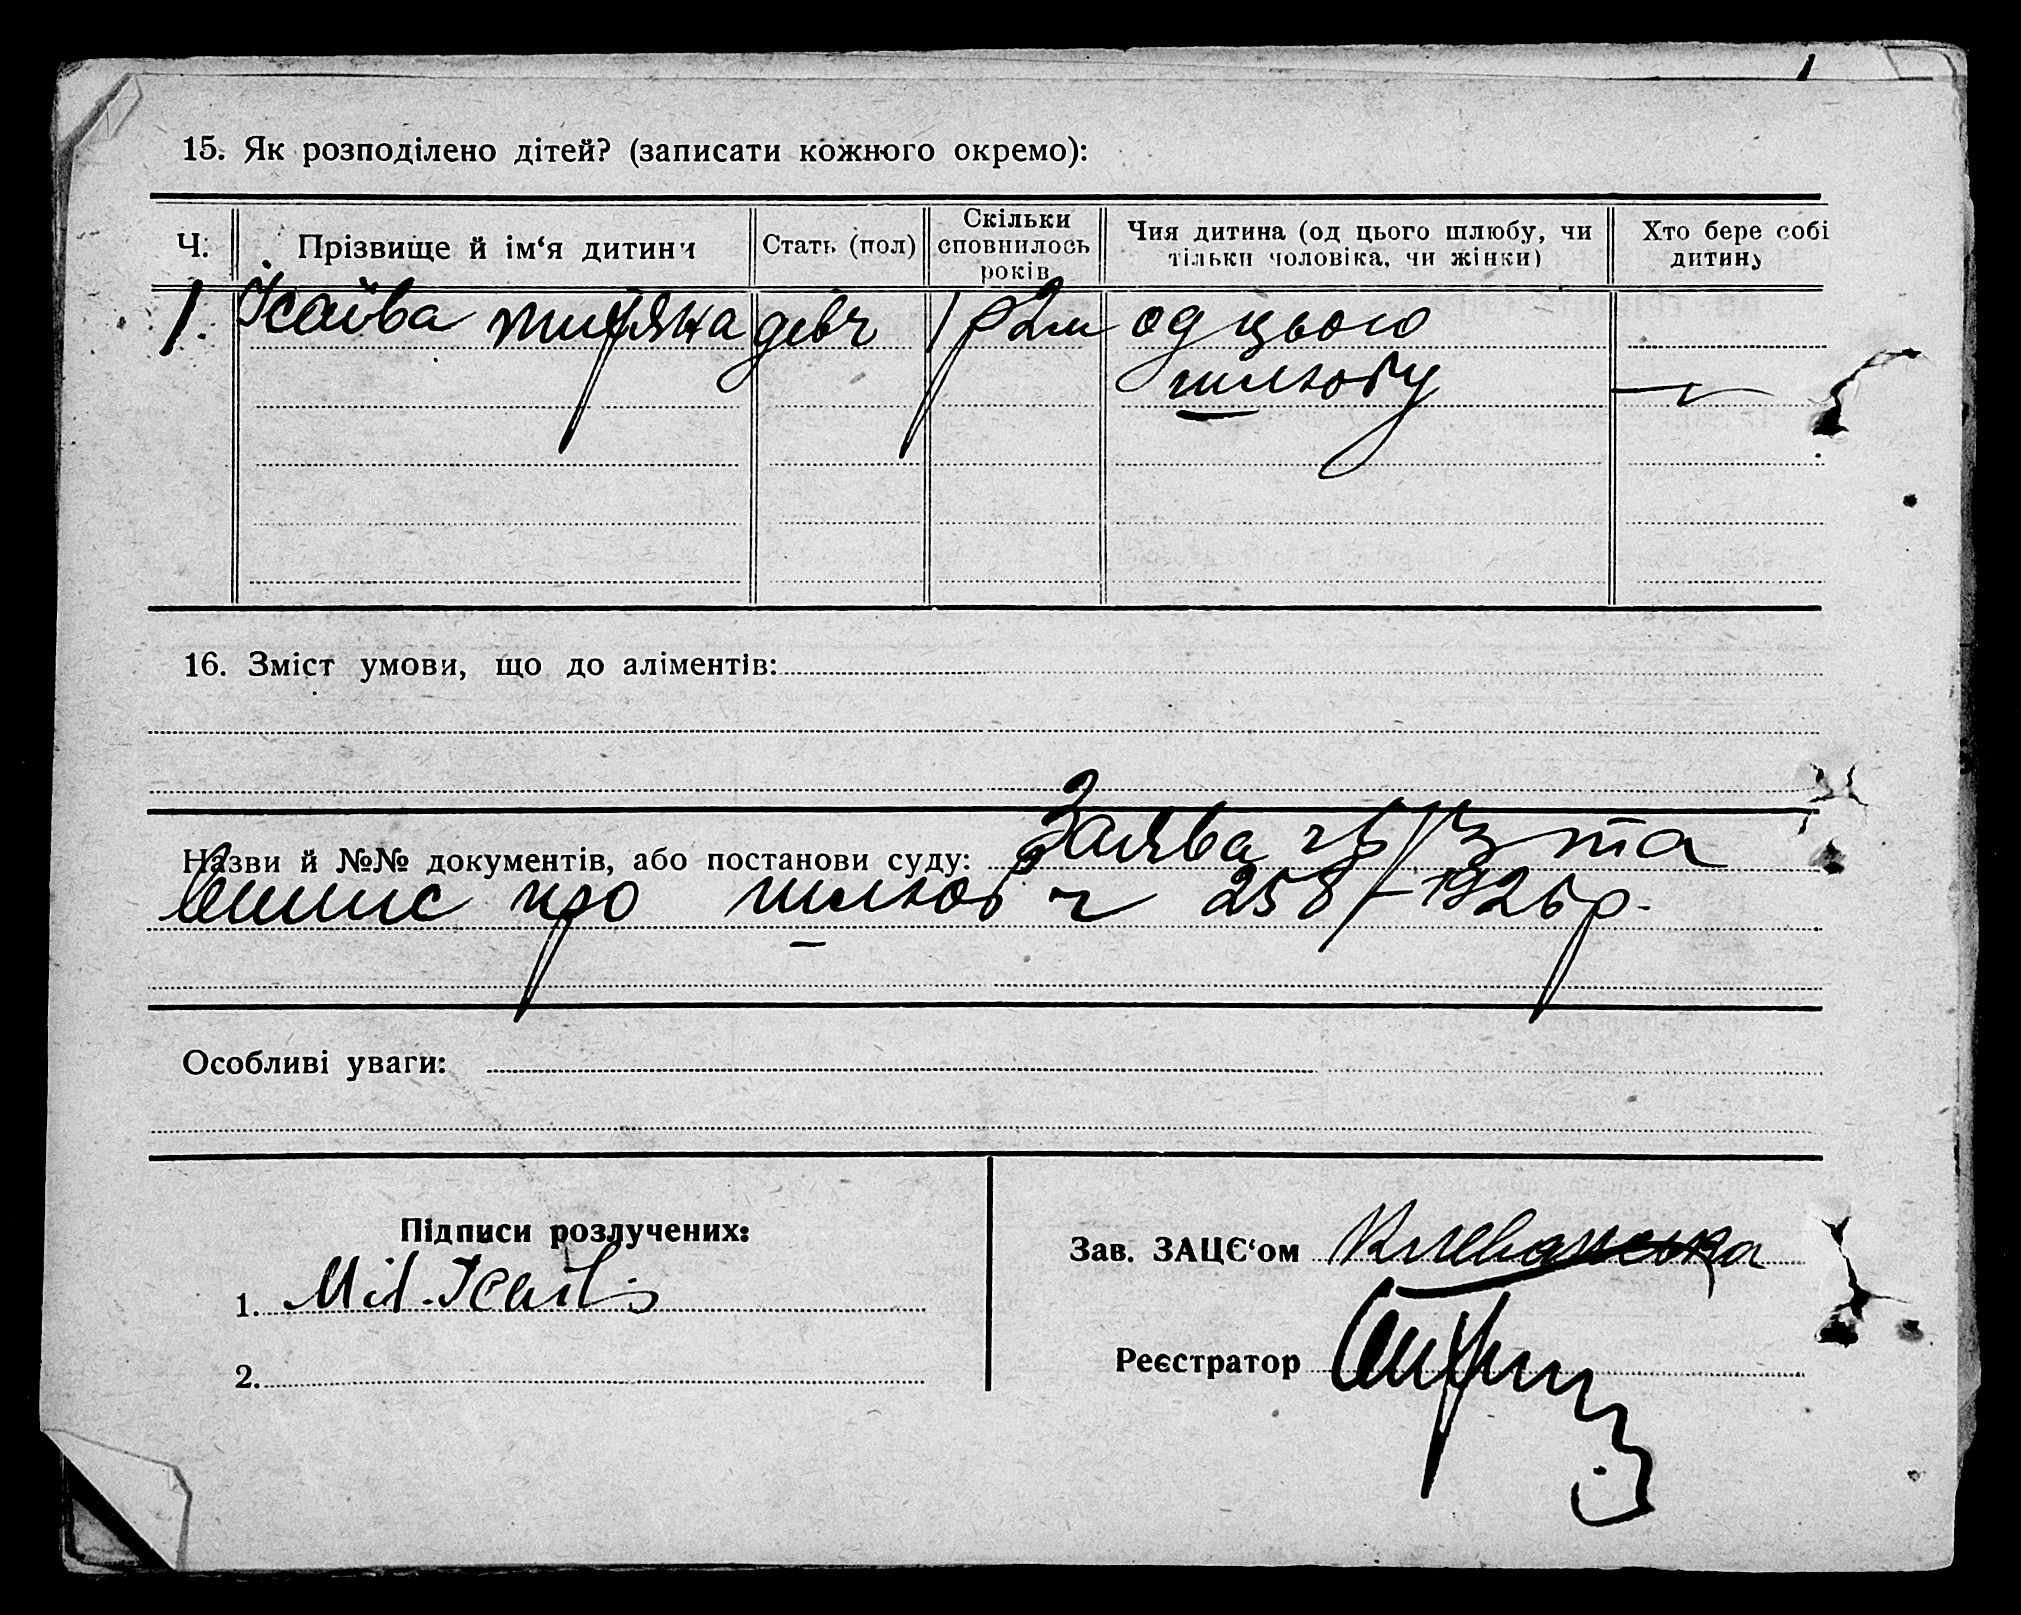 15. Як розподілено дітей? (записати кожного окремо):
Ч. Прізвище й ім‘я дитини Стать (пол) Скільки сповнилось років Чия дитина (од цього шлюбу, чи тільки чоловіка, чи жінки) Хто бере собі дитину
1. Ісаїва девч 1 р 2 м од цього
шлюбу —
16. Зміст умови, що до аліментів:
Назви й №№ документів, або постанови суду: Заява та
випис про шлюб ч 258 – 1926 р.
Особливі уваги:
Підписи розлучених:
Зав. ЗАЦЄ‘ом
1.
Реєстратор
2.